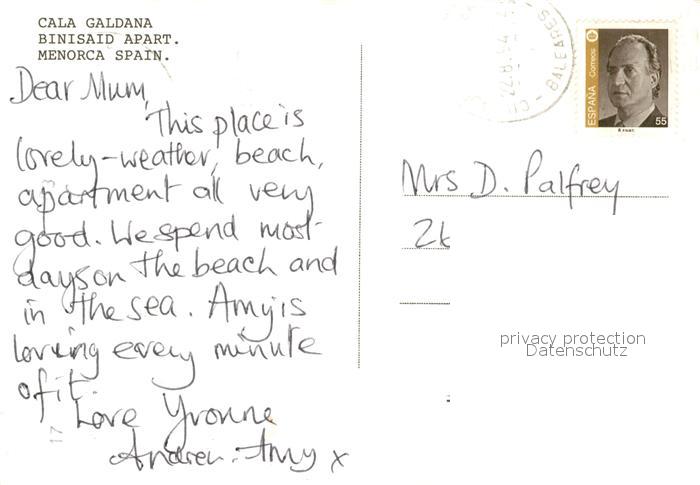 CALA GALDANA
BINISAID APART.
MENORCA SPAIN.
Dear Mum,
This place is
lovely-weather, beach,
apartment all very
good. We spend most
days on the beach and
in the sea. Amy is
loving every minute
of it.
Love Yvonne
Andrew. Amy x
17
22.8.94
BALEARES
ESPAÑA
Correos
55
Mrs D. Palfrey
privacy protection
Datenschutz